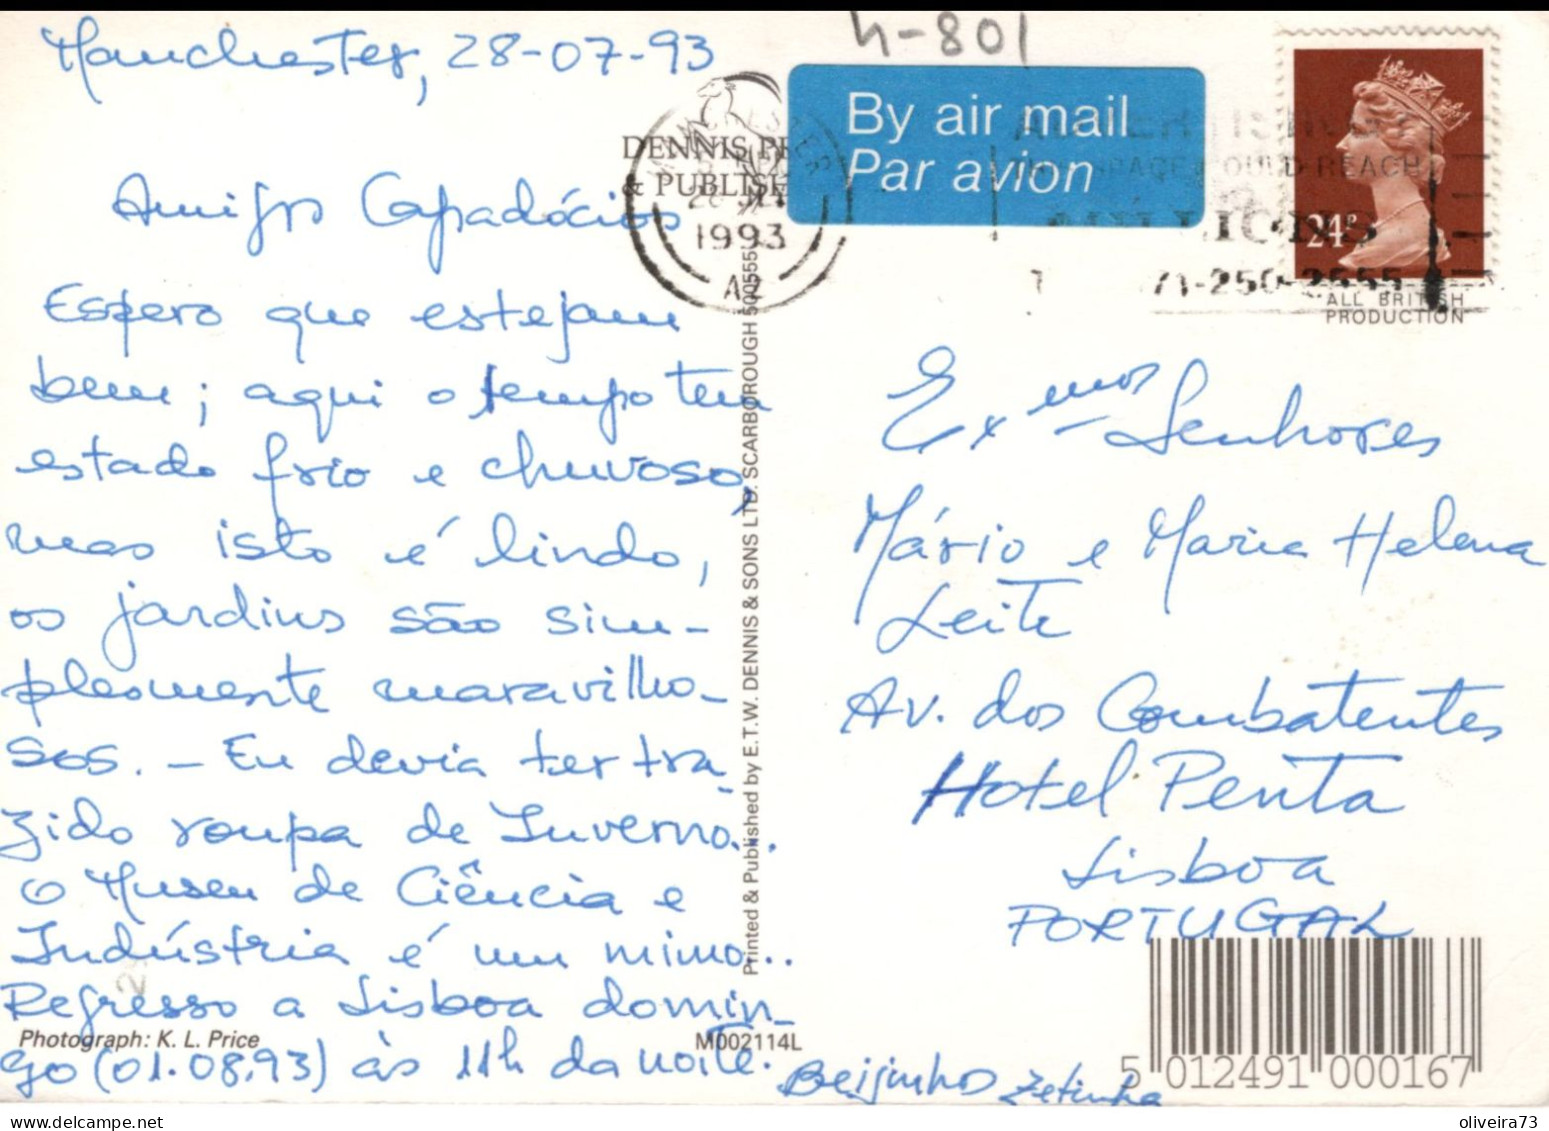 Manchester, 28-07-93
Amigos Capadócios
Espero que estejam
bem; aqui o tempo tem
estado frio e chuvoso,
mas isto é lindo,
os jardins são sim-
plesmente maravilho-
sos. - Eu devia ter tra-
zido roupa de Inverno...
O Museu de Ciência e
Indústria é um mimo...
Regresso a Lisboa domin-
go (01.08.93) às 11h da noite.
Beijinhos Zetinha
Photograph: K. L. Price
M002114L
DENNIS
& PUBLISH
1993
AZ
Printed & Published by E.T.W. DENNIS & SONS LTD. SCARBOROUGH 500555
h-801
By air mail
Par avion
REACH
71-250-2555
24P
ALL BRITISH
PRODUCTION
Exmos Senhores
Mário e Maria Helena
Leite
Av. dos Combatentes
Hotel Penta
Lisboa
PORTUGAL
5 012491 000167
oliveira73